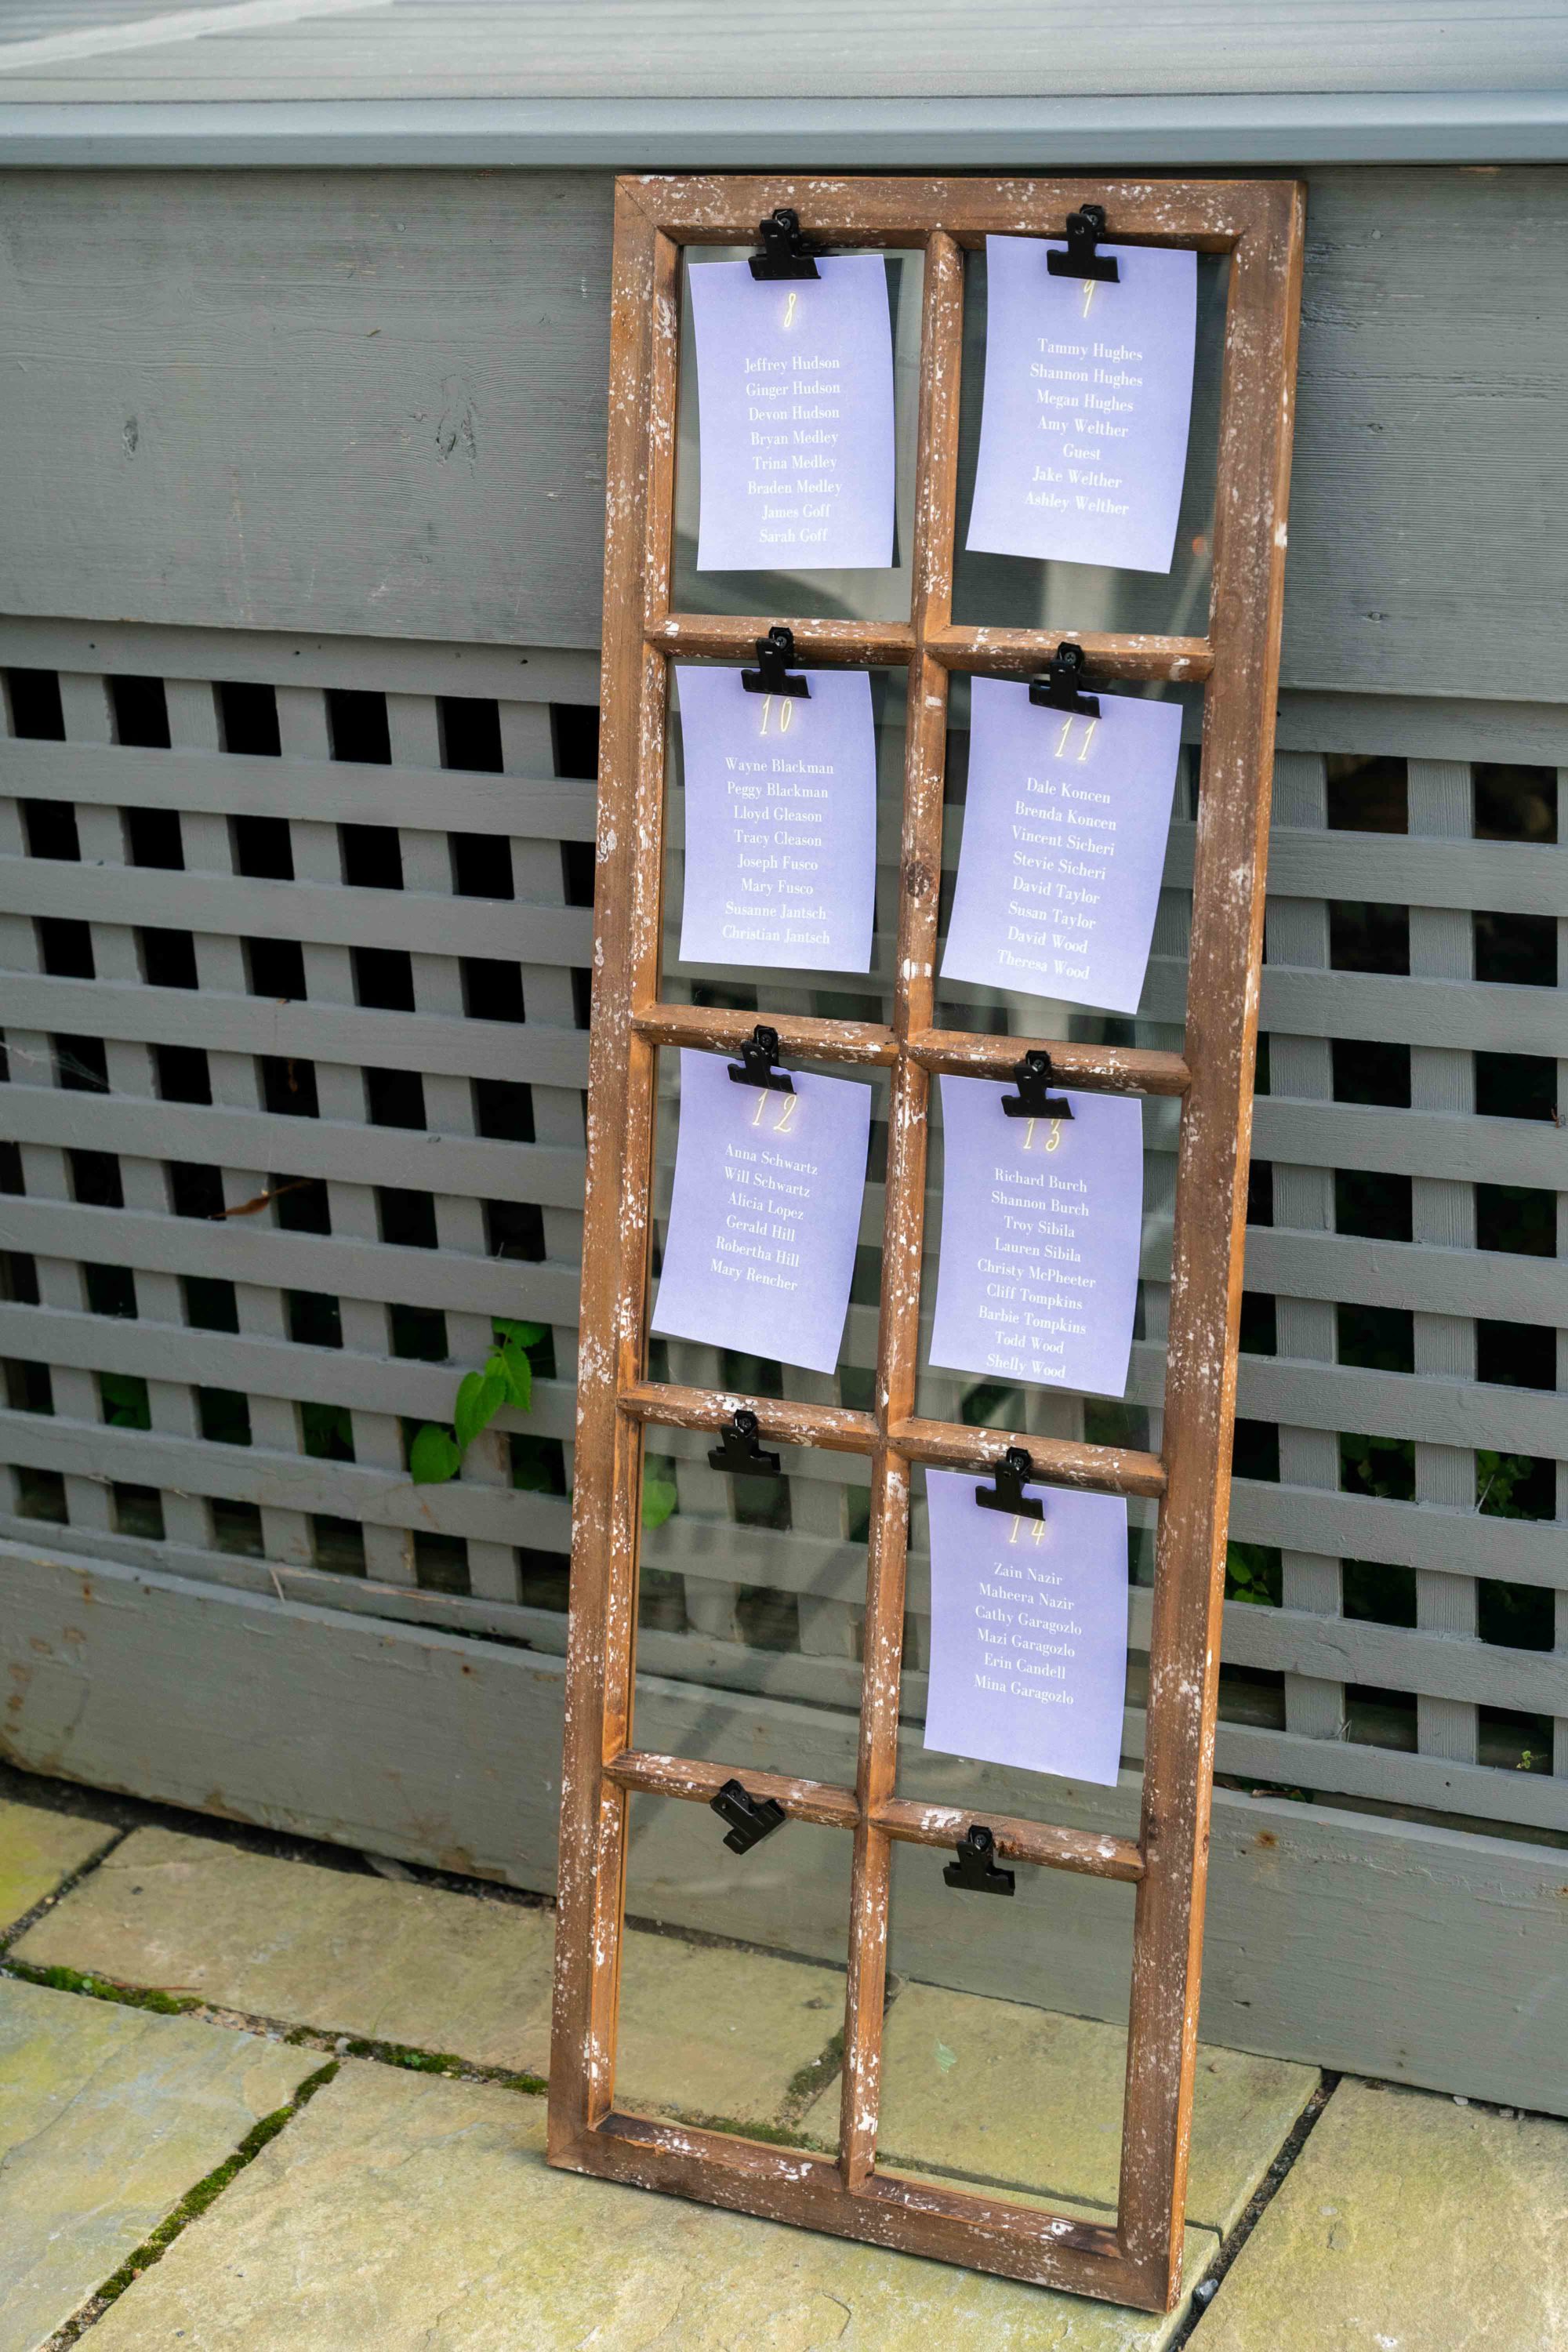 8
Jeffrey Hudson
Ginger Hudson
Devon Hudson
Bryan Medley
Trina Medley
Braden Medley
James Goff
Sarah Goff
9
Tammy Hughes
Shannon Hughes
Megan Hughes
Amy Welther
Guest
Jake Welther
Ashley Welther
10
Wayne Blackman
Peggy Blackman
Lloyd Gleason
Tracy Cleason
Joseph Fusco
Mary Fusco
Susanne Jantsch
Christian Jantsch
11
Dale Koncen
Brenda Koncen
Vincent Sicheri
Stevie Sicheri
David Taylor
Susan Taylor
David Wood
Theresa Wood
12
Anna Schwartz
Will Schwartz
Alicia Lopez
Gerald Hill
Robertha Hill
Mary Rencher
13
Richard Burch
Shannon Burch
Troy Sibila
Lauren Sibila
Christy McPheeter
Cliff Tompkins
Barbie Tompkins
Todd Wood
Shelly Wood
14
Zain Nazir
Maheera Nazir
Cathy Garagozlo
Mazi Garagozlo
Erin Candell
Mina Garagozlo